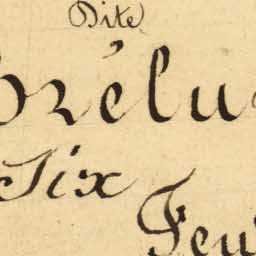 Dite
Prélu
Six
Feu